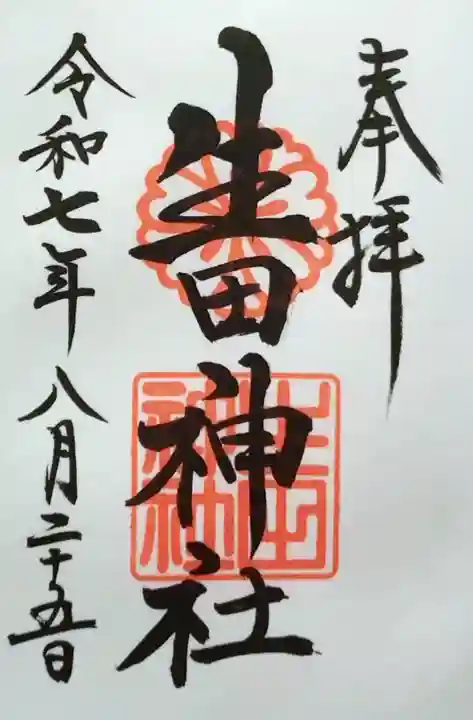 奉拝
生田神社
生田
神社
令和七年八月二十五日